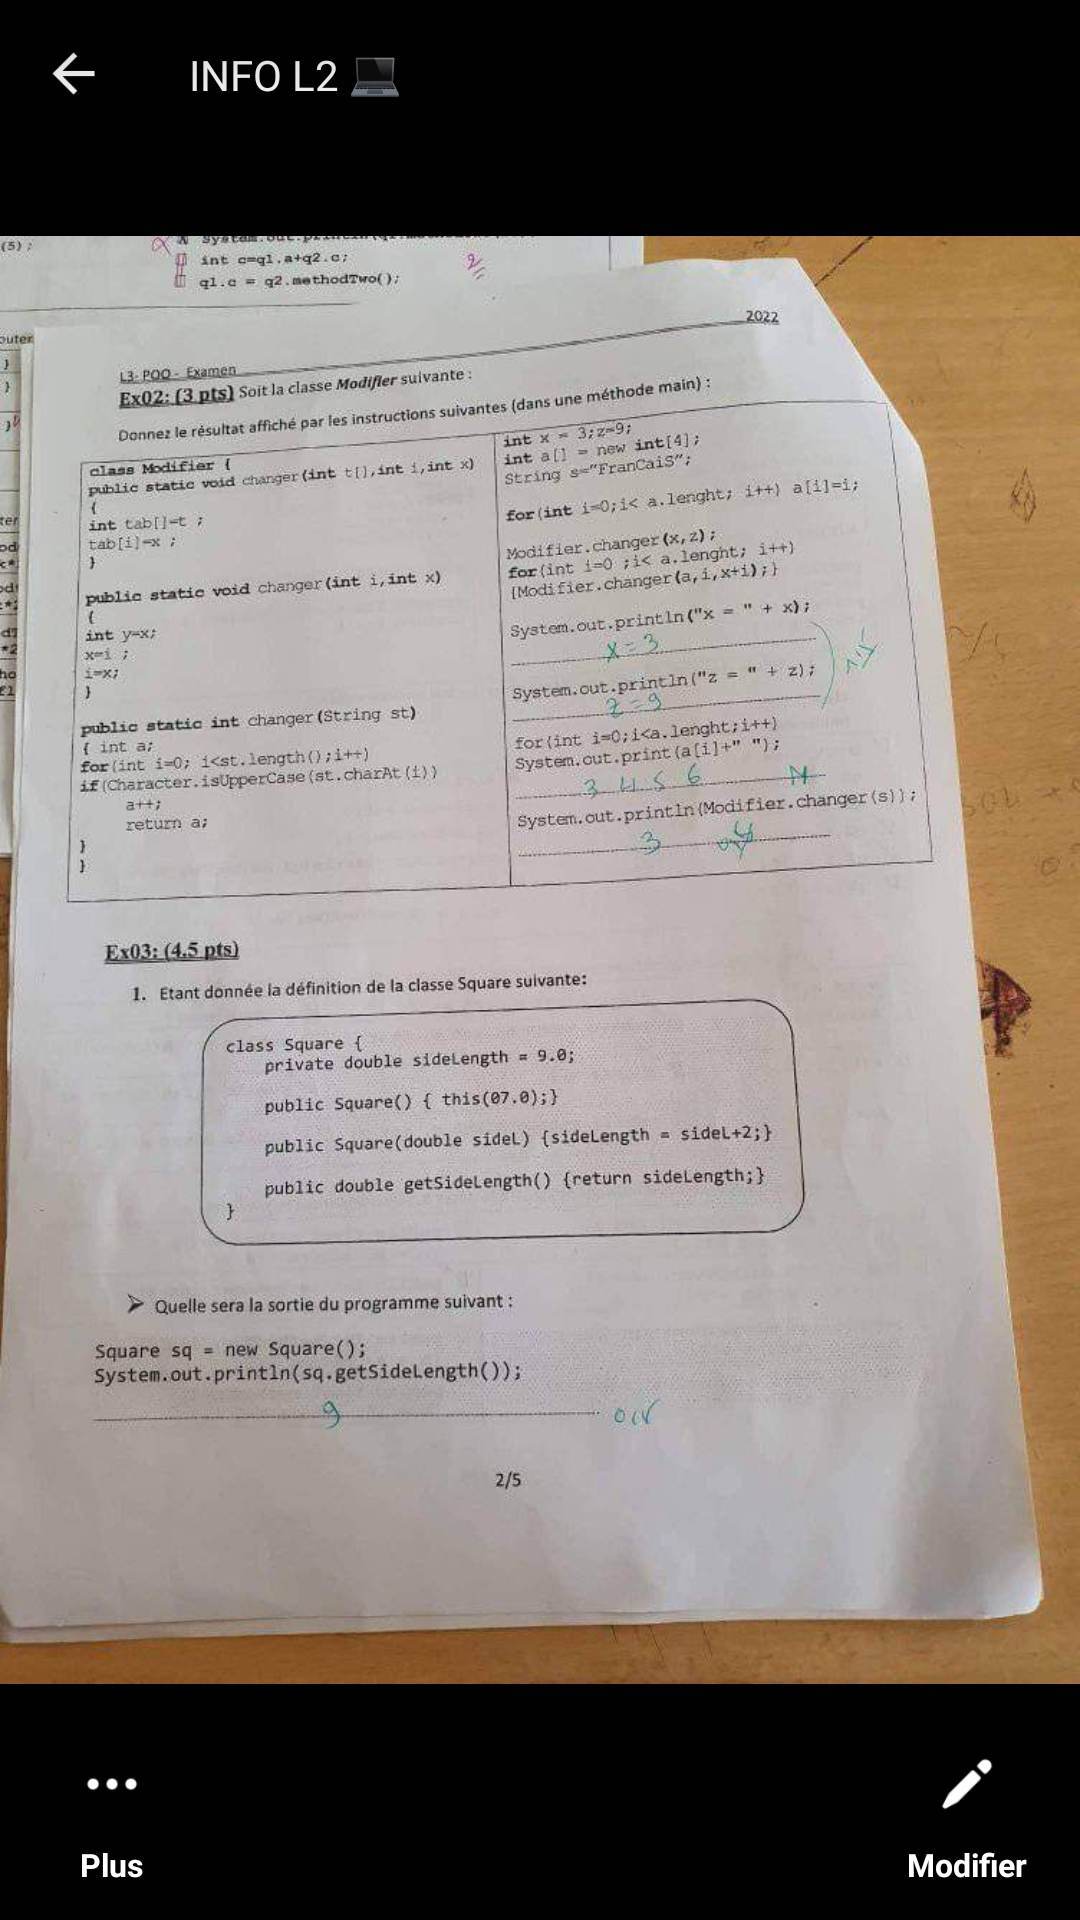 INFO L2 💻
(5);
int c=q1.a+q2.c;
2
q1.c = q2.methodTwo();
2022
L3- POO - Examen
Ex02: (3 pts) Soit la classe Modifier suivante :
Donnez le résultat affiché par les instructions suivantes (dans une méthode main) :
class Modifier {
public static void changer(int t[],int i,int x)
{
int tab[]=t ;
tab[i]=x ;
}
public static void changer(int i,int x)
{
int y=x;
x=i ;
i=x;
}
public static int changer(String st)
{ int a;
for(int i=0; i<st.length();i++)
if(Character.isUpperCase(st.charAt(i))
a++;
return a;
}
}
int x = 3;z=9;
int a[] = new int[4];
String s="FranCaiS";
for(int i=0;i< a.lenght; i++) a[i]=i;
Modifier.changer(x,z);
for(int i=0 ;i< a.lenght; i++)
{Modifier.changer(a,i,x+i);}
System.out.println("x = " + x);
x = 3
System.out.println("z = " + z);
z = 9
for(int i=0;i<a.lenght;i++)
System.out.print(a[i]+" ");
3 4 5 6
System.out.println(Modifier.changer(s));
3
Ex03: (4.5 pts)
1. Etant donnée la définition de la classe Square suivante:
class Square {
private double sideLength = 9.0;
public Square() { this(07.0);}
public Square(double sideL) {sideLength = sideL+2;}
public double getSideLength() {return sideLength;}
}
➢ Quelle sera la sortie du programme suivant :
Square sq = new Square();
System.out.println(sq.getSideLength());
9
2/5
Plus
Modifier